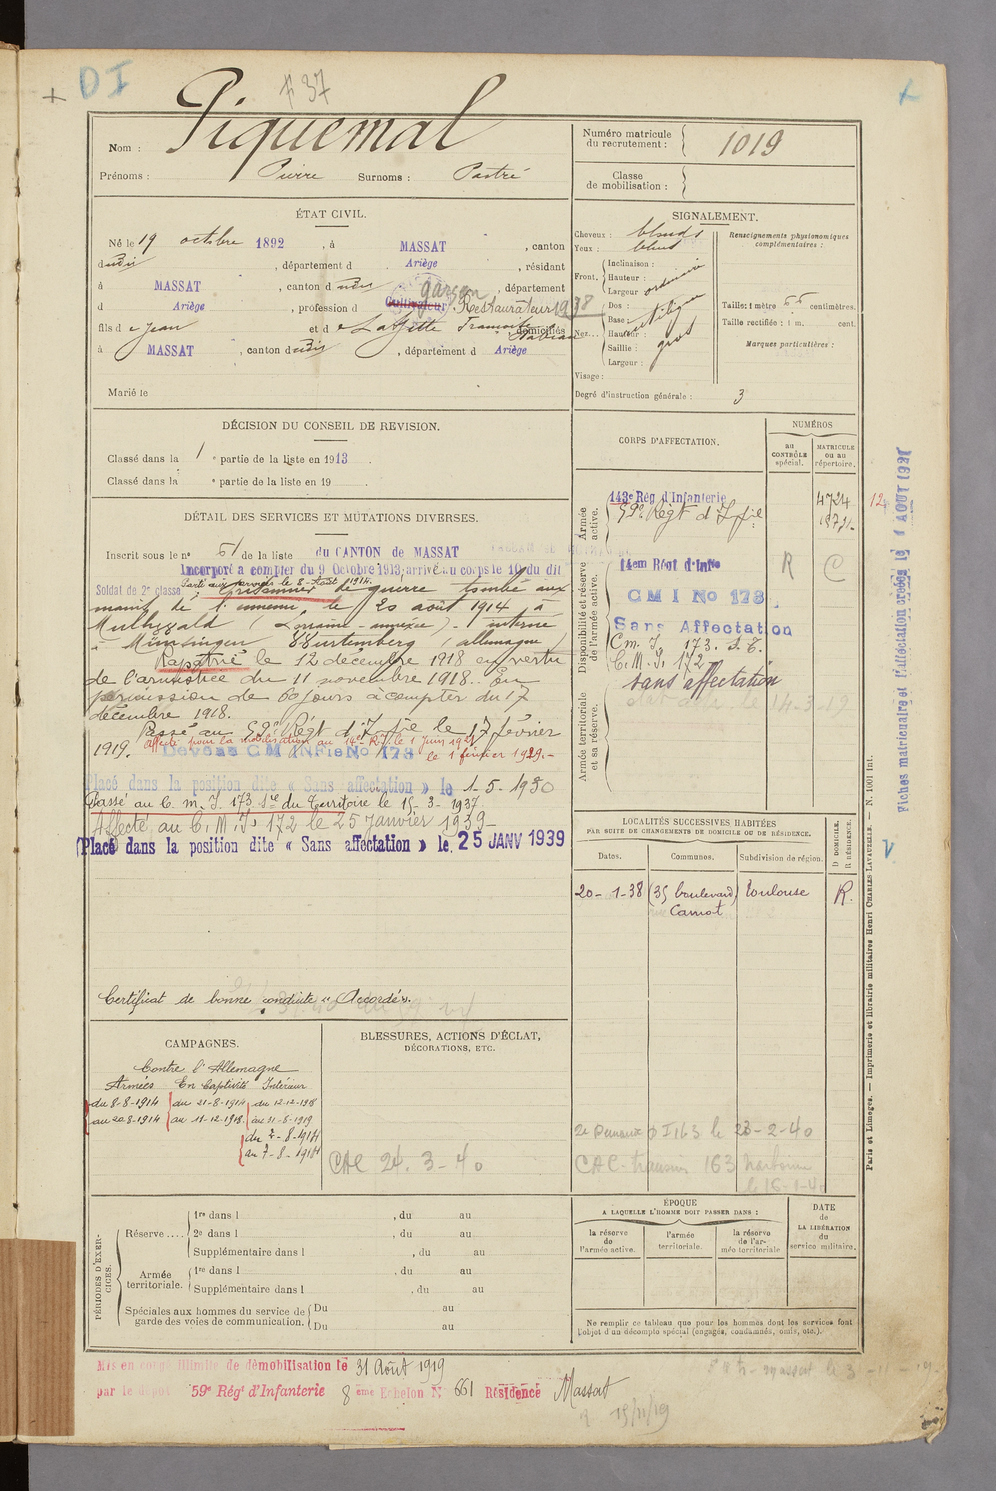 DI
F 37
Nom : Piquemal
Prénoms : Pierre Surnoms : Pastré
Numéro matricule du recrutement : 1019
Classe de mobilisation :
ÉTAT CIVIL.
Né le 19 octobre 1892, à MASSAT, canton
dudit, département d Ariège, résidant
à MASSAT, canton dudit, département
d Ariège, profession d Cultivateur garçon Restaurateur 1938
fils de Jean et de Laffitte Françoise domiciliés
à MASSAT, canton dudit, département d Ariège
Marié le
SIGNALEMENT.
Cheveux : blonds
Yeux : bleus
Front. Inclinaison :
Hauteur : ordinaire
Largeur
Nez... Dos :
Base : rectiligne
Hauteur :
Saillie : gros
Largeur :
Visage :
Renseignements physionomiques complémentaires :
Taille : 1 mètre 55 centimètres.
Taille rectifiée : 1 m. cent.
Marques particulières :
Degré d'instruction générale : 3
DÉCISION DU CONSEIL DE REVISION.
Classé dans la 1e partie de la liste en 1913.
Classé dans la e partie de la liste en 19 .
DÉTAIL DES SERVICES ET MUTATIONS DIVERSES.
Inscrit sous le no 51 de la liste du CANTON de MASSAT
Incorporé à compter du 9 Octobre 1913, arrivé au corps le 10 du dit
Parti aux armées le 8 Août 1914.
Soldat de 2e classe, Prisonnier de guerre tombé aux
mains de l'ennemi, le 20 août 1914 à
(Lorraine annexée). Interné
à Münsingen Wurtemberg (Allemagne)
Rapatrié le 12 décembre 1918 en vertu
de l'armistice du 11 novembre 1918. En
permission de 60 jours à compter du 17
décembre 1918.
Passé au 59e Régt d'Ifie le 17 février
1919. Affecté pour la mobilisation au 14e R.I. le 1 Juin 1921
CM INFie No 178 le 1 février 1929.
Placé dans la position dite « Sans affectation » le 1-5-1930
Passé au C. M. I. 173 Sce du Territoire le 15-3-1937.
Affecté au C. M. I. 172 le 25 Janvier 1939-
Placé dans la position dite « Sans affectation » le 25 JANV 1939
Certificat de bonne conduite « Accordé ».
CORPS D'AFFECTATION.
NUMÉROS
au CONTRÔLE spécial.
MATRICULE ou au répertoire.
Armée active.
143e Rég d'Infanterie 4724
59e Régt d'Ifie
Disponibilité et réserve de l'armée active.
14em Régt d'Infie R C
CMI No 178.
Sans Affectation
C. m. I. 173. S. T.
C. M. I. 172
Sans affectation
Armée territoriale et sa réserve.
12
Fiches matriculaire et d'affectation créées le 1 AOUT 1921
LOCALITÉS SUCCESSIVES HABITÉES
PAR SUITE DE CHANGEMENTS DE DOMICILE OU DE RÉSIDENCE.
Dates. Communes. Subdivision de région. D DOMICILE. R RÉSIDENCE.
20-1-38 (35 boulevard Carnot) Toulouse R.
CAMPAGNES.
Contre l'Allemagne
Armées En Captivité Intérieur
du 8-8-1914 du 21-8-1914 du 12-12-1918
au 20-8-1914 au 11-12-1918 au 31-8-1919
du 7-8-1914
au 7-8-1914
BLESSURES, ACTIONS D'ÉCLAT,
DÉCORATIONS, ETC.
CAC 24.3-40
le 23-2-40
CAC 163 Narbonne
le 16-1-40
PÉRIODES D'EXERCICES.
Réserve.... 1re dans l , du au
2e dans l , du au
Supplémentaire dans l , du au
Armée territoriale. 1re dans l , du au
Supplémentaire dans l , du au
Spéciales aux hommes du service de garde des voies de communication. Du au
Du au
ÉPOQUE
A LAQUELLE L'HOMME DOIT PASSER DANS :
la réserve de l'armée active.
l'armée territoriale.
la réserve de l'armée territoriale
DATE de LA LIBÉRATION du service militaire.
Ne remplir ce tableau que pour les hommes dont les services font
l'objet d'un décompte spécial (engagés, condamnés, omis, etc.).
Mis en congé illimité de démobilisation le 31 Août 1919
par le dépôt 59e Régt d'Infanterie 8ème Echelon N° 661 Résidence Massat
15/11/19
Paris et Limoges. — Imprimerie et librairie militaires Henri CHARLES-LAVAUZELLE. — N. 1001 Int.